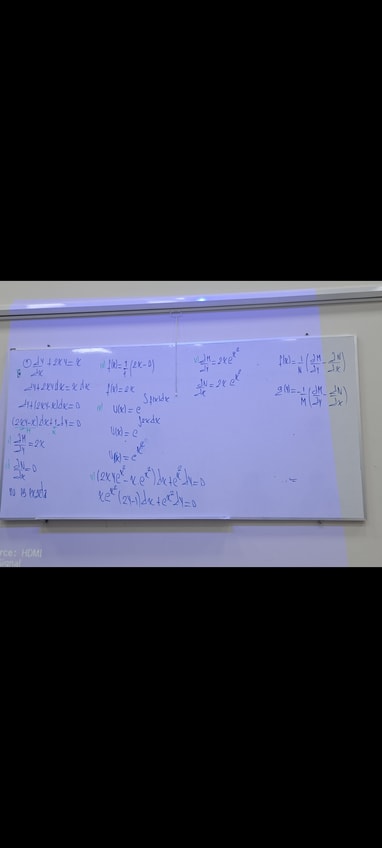 ① dy/dx + 2xy = x
dy + 2xy dx = x dx
dy + (2xy - x)dx = 0
(2xy - x)dx + 1 dy = 0
M N
∂M/∂y = 2x
∂N/∂x = 0
no es exacta
f(x) = 1/1 (2x - 0)
f(x) = 2x
u(x) = e^∫f(x)dx
u(x) = e^∫2xdx
u(x) = e^x²
(2xye^x² - xe^x²)dx + e^x² dy = 0
xe^x²(2y-1)dx + e^x² dy = 0
∂M/∂y = 2xe^x²
∂N/∂x = 2xe^x²
f(x) = 1/N (∂M/∂y - ∂N/∂x)
g(y) = -1/M (∂M/∂y - ∂N/∂x)
=
rce: HDMI
Signal